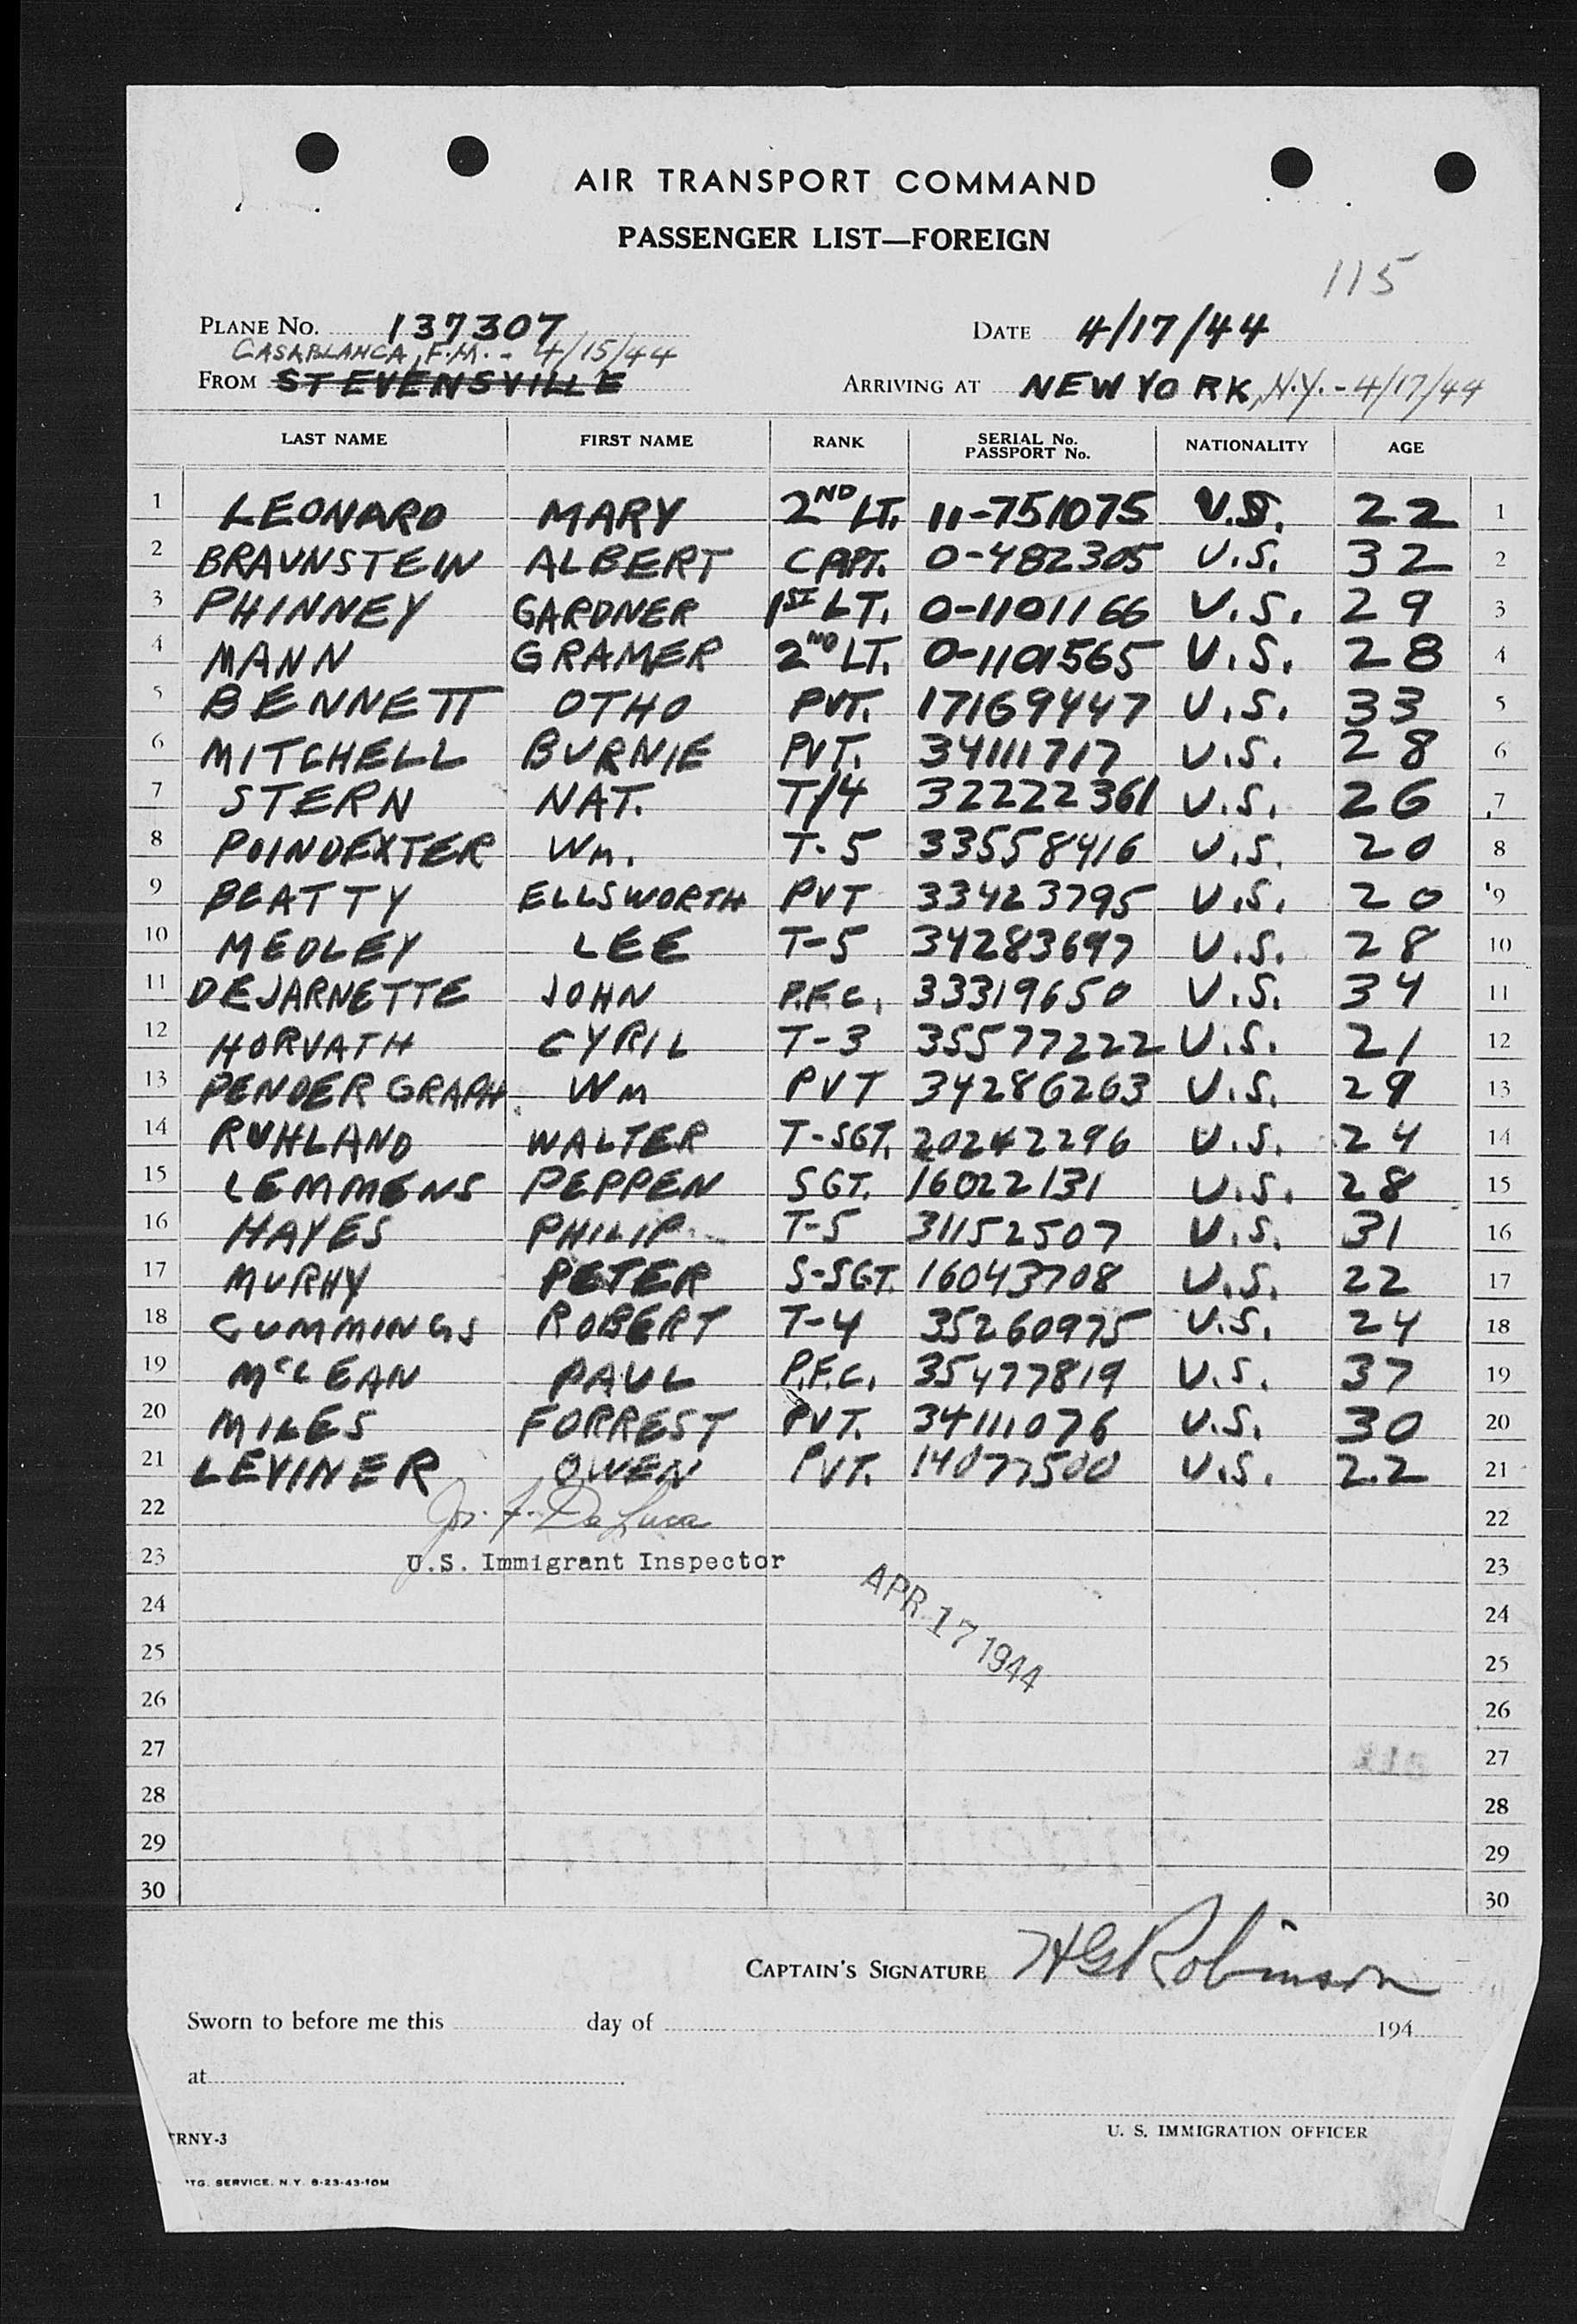 AIR TRANSPORT COMMAND
PASSENGER LIST—FOREIGN
115
PLANE NO. 137307 DATE 4/17/44
CASABLANCA, F.M. - 4/15/44
FROM STEVENSVILLE ARRIVING AT NEW YORK, N.Y. - 4/17/44
LAST NAME FIRST NAME RANK SERIAL No. PASSPORT No. NATIONALITY AGE
1 LEONARD MARY 2ND LT. 11-751075 U.S. 22 1
2 BRAUNSTEIN ALBERT CAPT. 0-482305 U.S. 32 2
3 PHINNEY GARDNER 1ST LT. 0-1101166 U.S. 29 3
4 MANN GRAMER 2ND LT. 0-1101565 U.S. 28 4
5 BENNETT OTHO PVT. 17169447 U.S. 33 5
6 MITCHELL BURNIE PVT. 34111717 U.S. 28 6
7 STERN NAT. T/4 32222361 U.S. 26 7
8 POINDEXTER Wm. T-5 33558416 U.S. 20 8
9 BEATTY ELLSWORTH PVT 33423795 U.S. 20 9
10 MEDLEY LEE T-5 34283697 U.S. 28 10
11 DEJARNETTE JOHN P.F.C. 33319650 U.S. 34 11
12 HORVATH CYRIL T-3 35577222 U.S. 21 12
13 PENDERGRAPH Wm PVT 34286263 U.S. 29 13
14 RUHLAND WALTER T-SGT. 20242296 U.S. 24 14
15 LEMMENS PEPPEN SGT. 16022131 U.S. 28 15
16 HAYES PHILIP T-5 31152507 U.S. 31 16
17 MURHY PETER S-SGT. 16043708 U.S. 22 17
18 CUMMINGS ROBERT T-4 35260975 U.S. 24 18
19 McLEAN PAUL P.F.C. 35477819 U.S. 37 19
20 MILES FORREST PVT. 34111076 U.S. 30 20
21 LEVINER OWEN PVT. 14077500 U.S. 22 21
22 Jos. F. De Luca 22
23 U.S. Immigrant Inspector 23
APR 17 1944
24 24
25 25
26 26
27 27
28 28
29 29
30 30
CAPTAIN'S SIGNATURE HG Robinson
Sworn to before me this day of 194
at
U. S. IMMIGRATION OFFICER
RNY-3
TG. SERVICE. N.Y. 8-23-43-10M